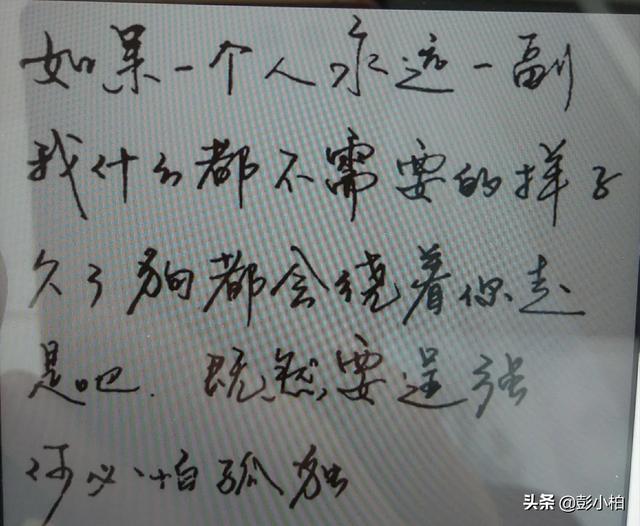 如果一个人永远一副
我什么都不需要的样子
久了狗都会绕着你走
是吧. 既然要逞强
何必怕孤独
头条 @彭小柏